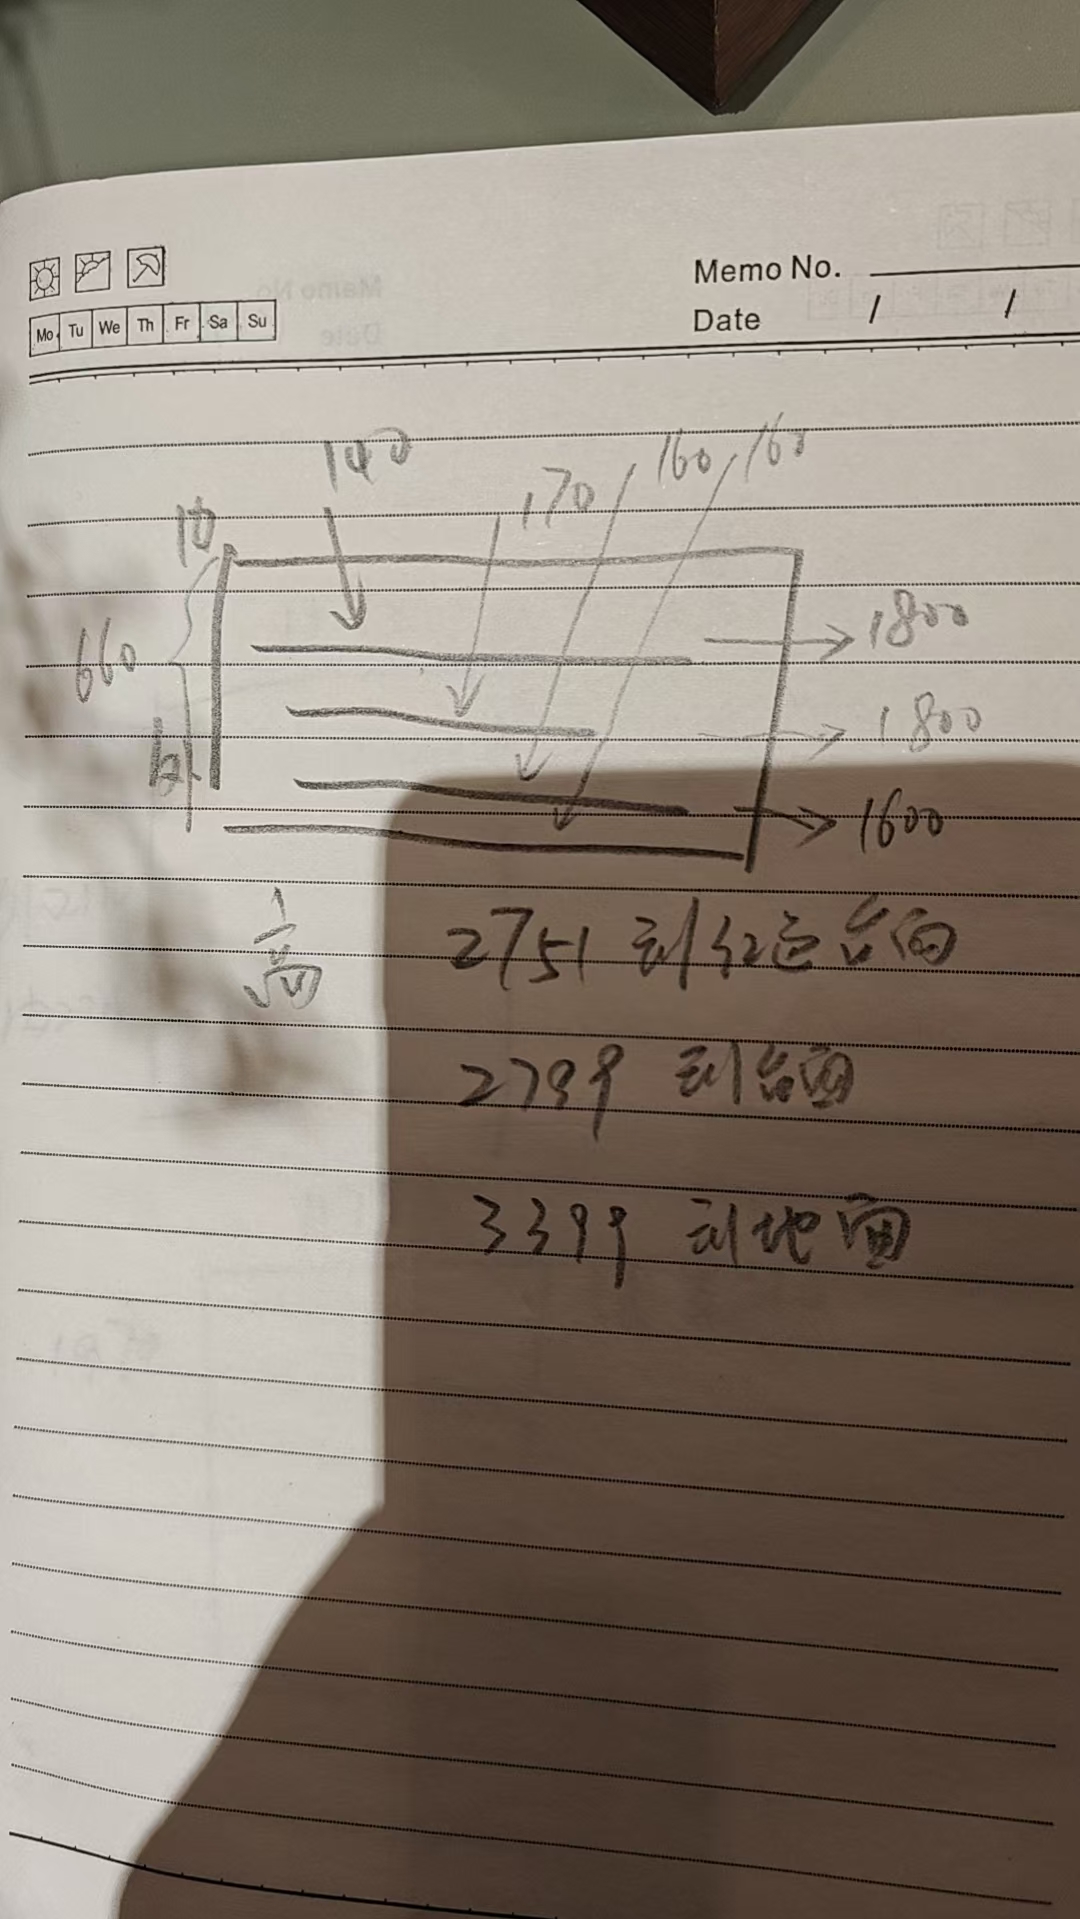 Memo No.
Mo Tu We Th Fr Sa Su
Date / /
140
170 160 160
660
1800
1800
1600
高 2751 到红运台面
2799 到台面
3399 到地面